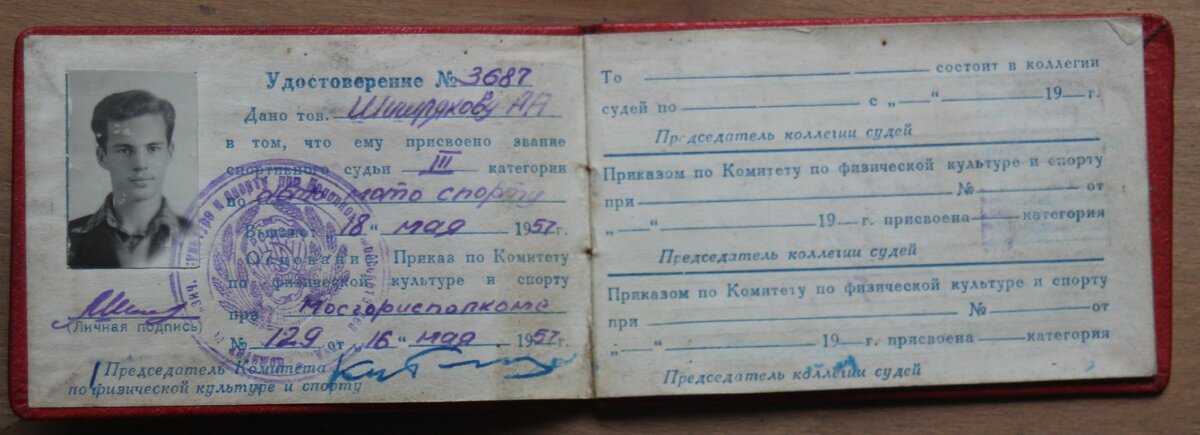 Удостоверение № 3687
Дано тов. Шишрякову АА
в том, что ему присвоено звание
спортивного судьи III категории
по авто мото спорту
Выдано „18“ мая 1957 г.
Основание Приказ по Комитету
по физической культуре и спорту
при Мосгорисполкоме
№ 129 от „16“ мая 1957 г.
(Личная подпись)
Председатель Комитета
по физической культуре и спорту
То состоит в коллегии
судей по с „ “ 19 г.
Председатель коллегии судей
Приказом по Комитету по физической культуре и спорту
при № от
„ “ 19 г. присвоена категория
Председатель коллегии судей
Приказом по Комитету по физической культуре и спорту
при № от
„ “ 19 г. присвоена категория
Председатель коллегии судей